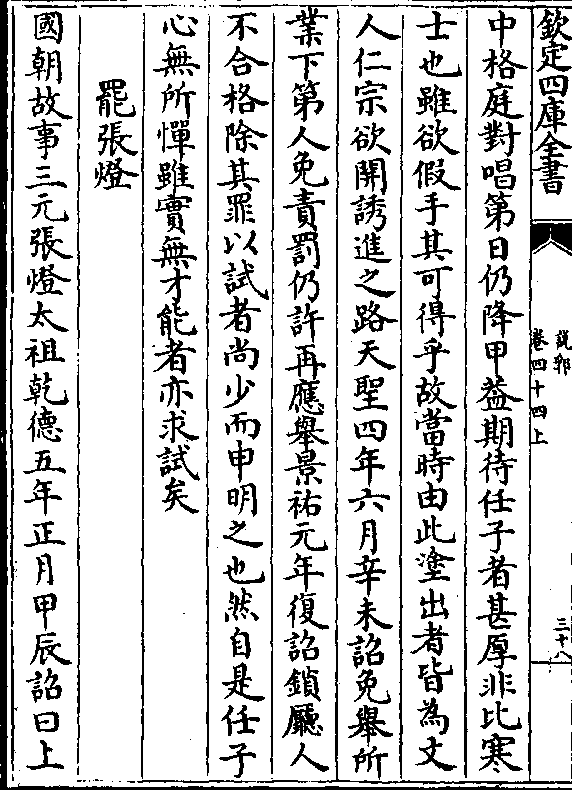 欽定四庫全書
說郛
卷四十四上
三十八
中格庭對唱第日仍降甲葢期待任子者甚厚非比寒
士也雖欲假手其可得乎故當時由此塗出者皆為文
人仁宗欲開誘進之路天聖四年六月辛未詔免舉所
業下第人免責罰仍許再應舉景祐元年復詔鎖廳人
不合格除其罪以試者尚少而申明之也然自是任子
心無所憚雖實無才能者亦求試矣
罷張燈
國朝故事三元張燈太祖乾德五年正月甲辰詔曰上